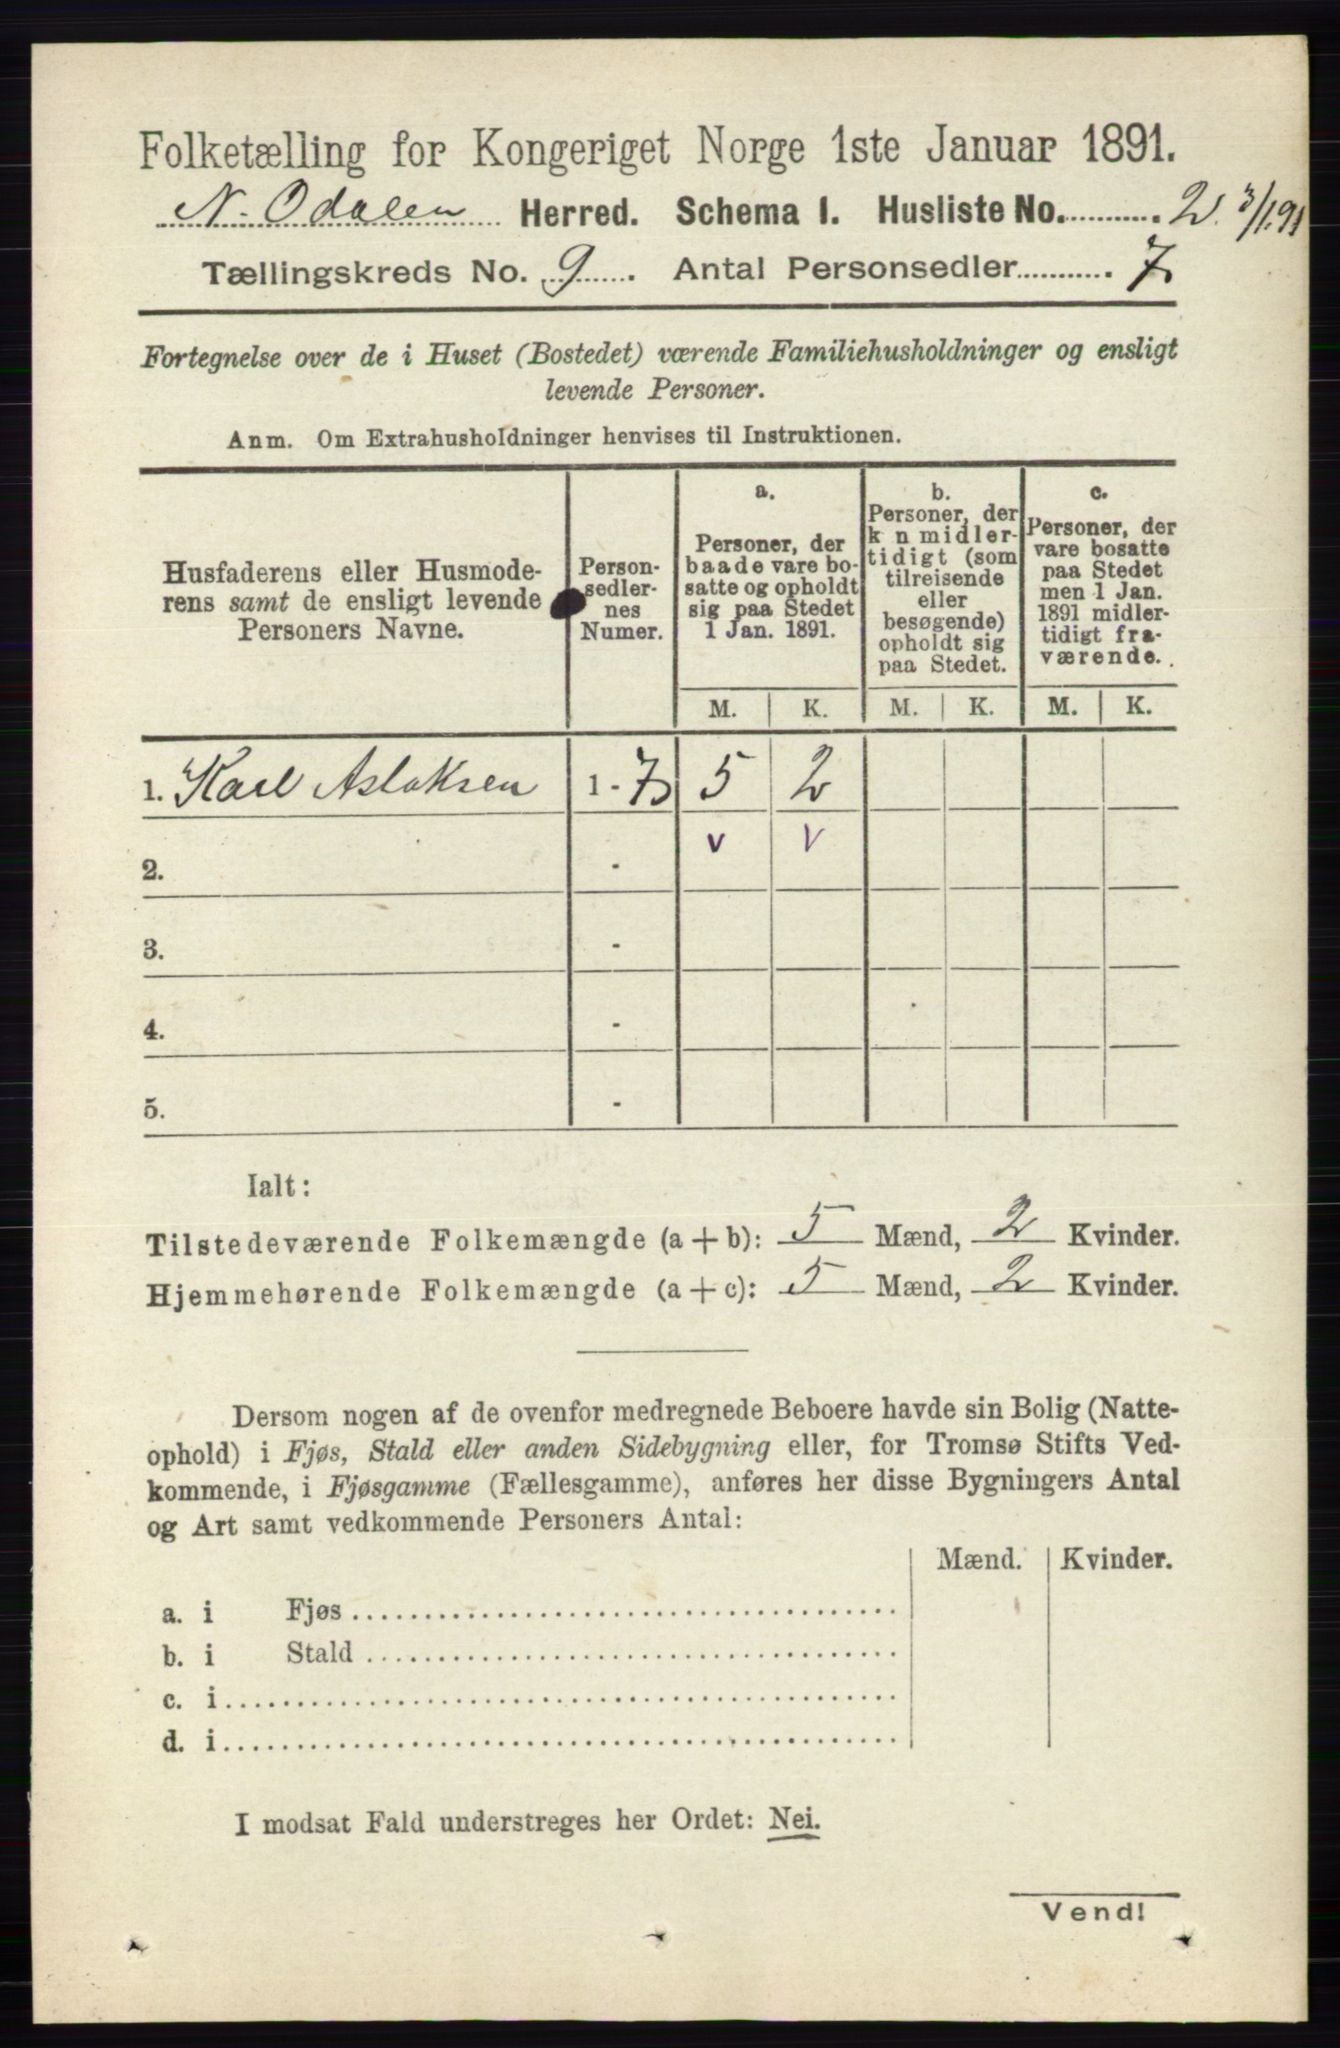 Folketælling for Kongeriget Norge 1ste Januar 1891.
N. Odalen Herred. Schema 1. Husliste No. 2. 3/1.91
Tællingskreds No. 9. Antal Personsedler 7
Fortegnelse over de i Huset (Bostedet) værende Familiehusholdninger og ensligt
levende Personer.
Anm. Om Extrahusholdninger henvises til Instruktionen.
Husfaderens eller Husmode-
rens samt de ensligt levende
Personers Navne.
Person-
sedler-
nes
Numer.
a.
Personer, der
baade vare bo-
satte og opholdt
sig paa Stedet
1 Jan. 1891.
b.
Personer, der
k n midler-
tidigt (som
tilreisende
eller
besøgende)
opholdt sig
paa Stedet.
c.
Personer, der
vare bosatte
paa Stedet
men 1 Jan.
1891 midler-
tidigt fra-
værende.
M. K. M. K. M. K.
1. Karl Aslaksen 1 - 7 5 2
2. - v v
3. -
4. -
5. -
Ialt:
Tilstedeværende Folkemængde (a + b): 5 Mænd, 2 Kvinder.
Hjemmehørende Folkemængde (a + c): 5 Mænd, 2 Kvinder.
Dersom nogen af de ovenfor medregnede Beboere havde sin Bolig (Natte-
ophold) i Fjøs, Stald eller anden Sidebygning eller, for Tromsø Stifts Ved-
kommende, i Fjøsgamme (Fællesgamme), anføres her disse Bygningers Antal
og Art samt vedkommende Personers Antal:
Mænd. Kvinder.
a. i Fjøs
b. i Stald
c. i
d. i
I modsat Fald understreges her Ordet: Nei.
Vend!